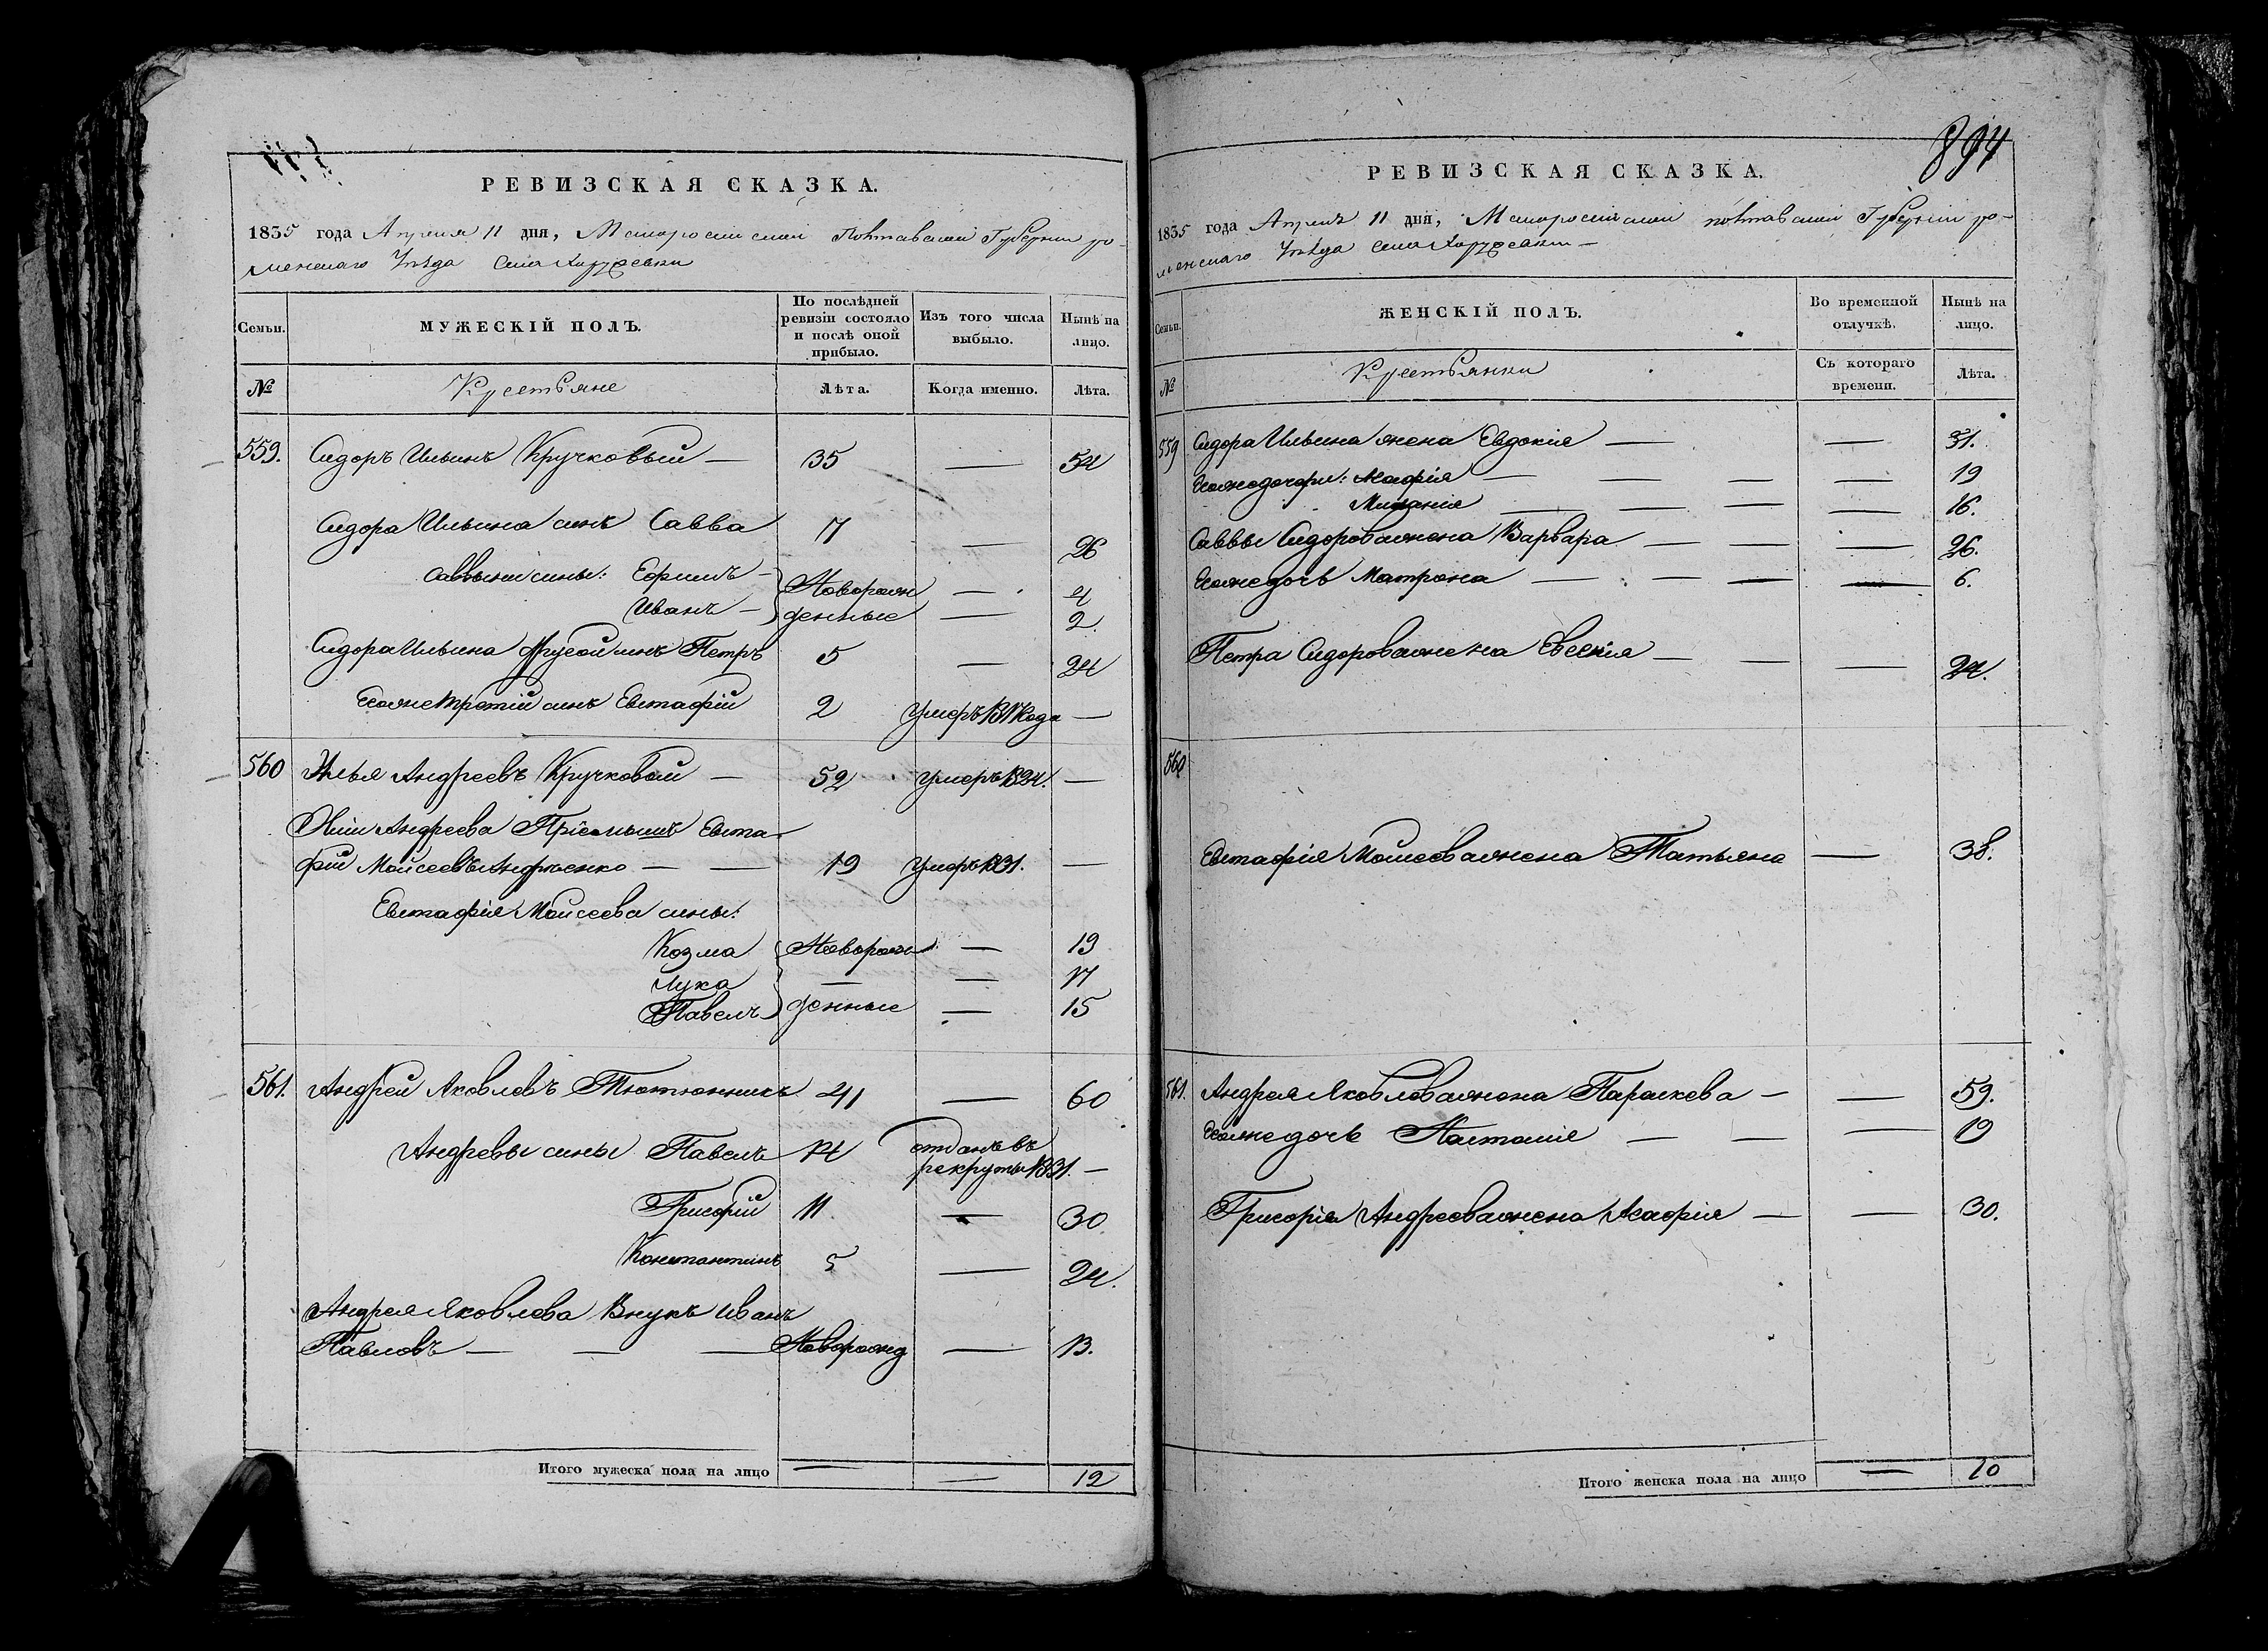 РЕВИЗСКАЯ СКАЗКА.
1835 года Апреля 11 дня, Малоросійской Полтавской Губерніи ро-
менскаго Уѣзда села Хоружевки
Семьи.
МУЖЕСКІЙ ПОЛЪ.
По послѣдней ревизіи состояло и послѣ оной прибыло.
Изъ того числа выбыло.
Нынѣ на лицо.
№
Крестьяне
Лѣта.
Когда именно.
Лѣта.
559. Сидоръ Ильинъ Кручковый — 35 — 54
Сидора Ильина сынъ Савва 7 — 26
Саввыни сыны: Ефимъ — Новорожденные — 4
Иванъ — — 2.
Сидора Ильина другой сынъ Петръ 5 — 24
Егоже третій сынъ Евстафій 2 умеръ 1817 года —
560 Илья Андреевъ Кручковый — 52 умеръ 1824. —
Ильи Андреева Пріемышъ Евста-
фій Мойсеевъ Андрюенко — — 19 умеръ 1831. —
Евстафія Мойсеева сыны:
Козма Новорож — 19
Лука — — 17
Павелъ денные — 15
561. Андрей Яковлевъ Тютюнникъ 41 — 60
Андреевы сыны Павелъ 14 отданъ въ
рекруты 1831. —
Григорій 11 — 30
Константинъ 5 — 24.
Андрея Яковлева Внукъ Иванъ
Павловъ — — — Новорожд — 13.
Итого мужеска пола на лицо — — 12
894
РЕВИЗСКАЯ СКАЗКА.
1835 года Апреля 11 дня, Малоросійской Полтавской Губерніи ро-
менскаго Уѣзда села Хоружевки —
Семьи.
ЖЕНСКІЙ ПОЛЪ.
Во временной отлучкѣ.
Нынѣ на лицо.
№
Крестьянки
Съ котораго времени.
Лѣта.
559 Сидора Ильина жена Евдокія — — 51.
Егоже дочери: Агафія — — — — 19
Миланія — — — — 16.
Саввы Сидорова жена Варвара — — — 26.
Егоже дочь Матрона — — — — 6.
Петра Сидорова жена Евгенія — — — 24.
560
Евстафія Мойсеева жена Татьяна — 38.
561. Андрея Яковлева жена Параскева — — 59.
Егоже дочь Настасія — — — 19
Григорія Андреева жена Агафія — — 30.
Итого женска пола на лицо — 10